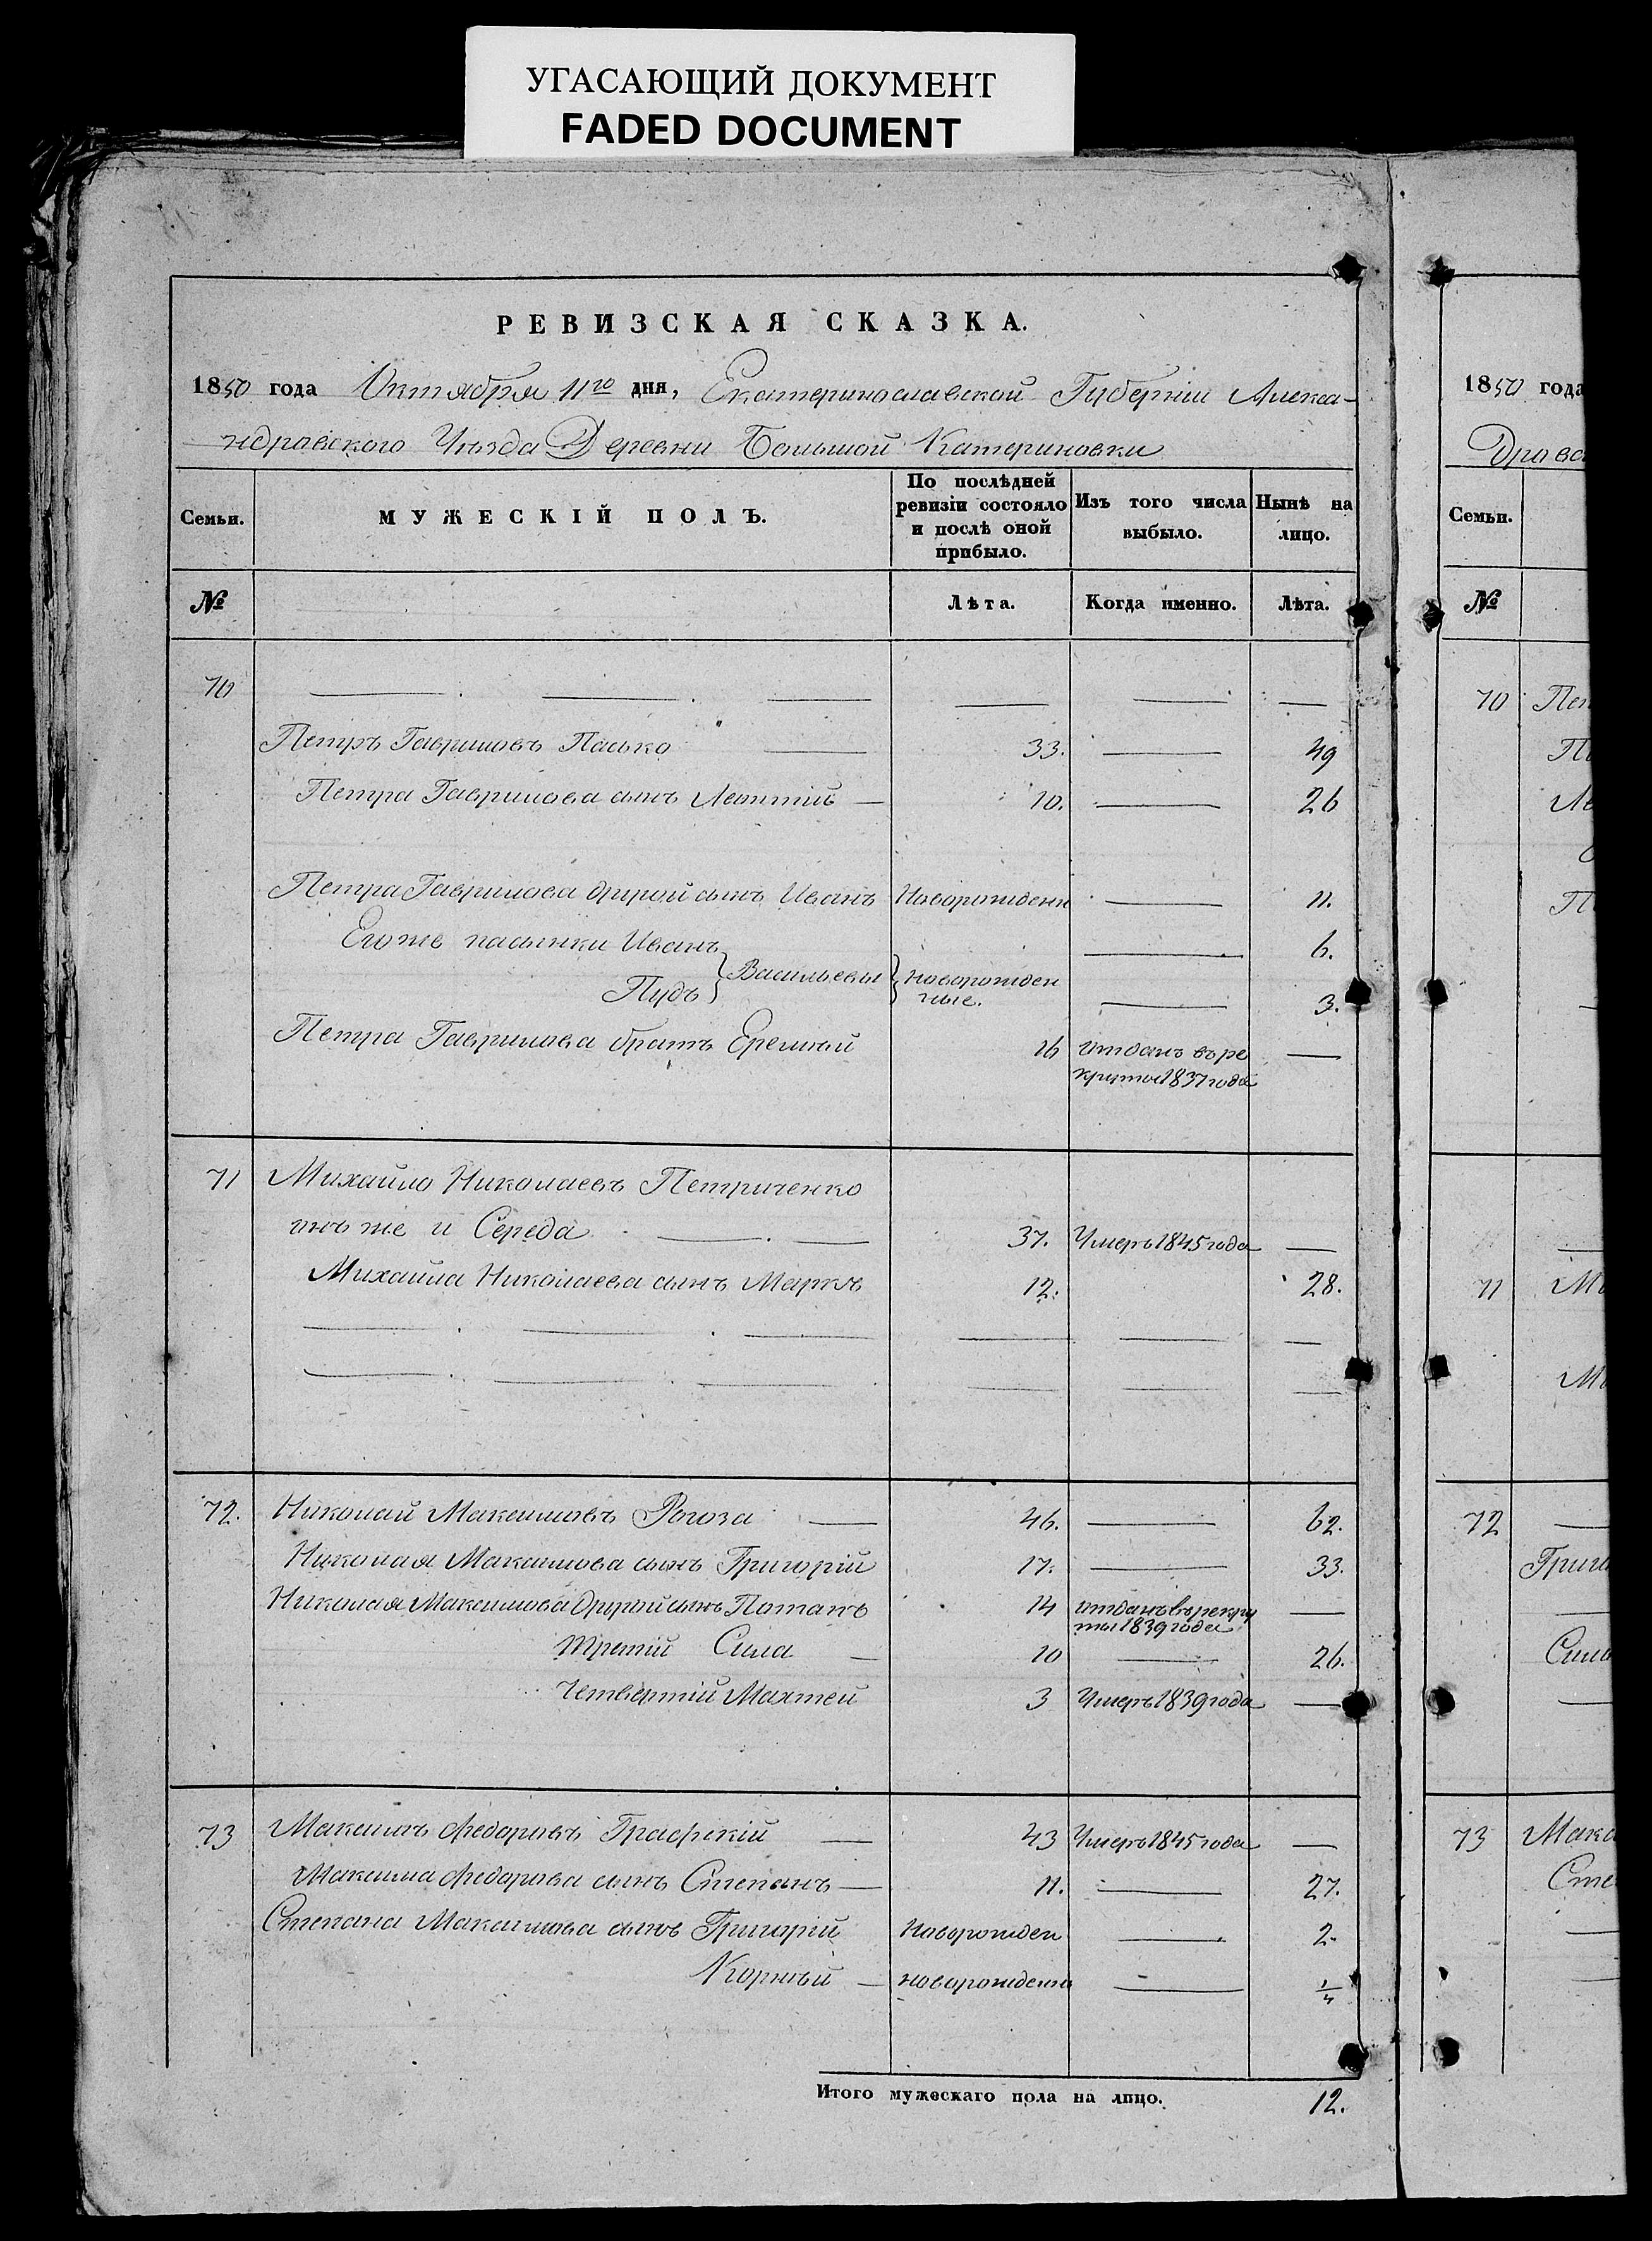 УГАСАЮЩИЙ ДОКУМЕНТ
FADED DOCUMENT
РЕВИЗСКАЯ СКАЗКА.
1850 года Октября 11го дня, Екатеринославской Губернiи Алекса-
ндравского Уѣзда Деревни Большой Катериновки
Семьи. МУЖЕСКІЙ ПОЛЪ. По послѣдней ревизіи состояло и послѣ оной прибыло. Изъ того числа выбыло. Нынѣ на лицо.
№ Лѣта. Когда именно. Лѣта.
70
Петръ Гавриловъ Пасько 33. 49
Петра Гаврилова сынъ Леонтій 10. 26
Петра Гаврилова другой сынъ Иванъ Новорожденн 11.
Его же пасынки Иванъ 6.
Пудъ } Васильевы } новорожден
ные. 3.
Петра Гаврилова братъ Еремѣй 16 отданъ въ ре
круты 1837 года
71 Михайло Николаевъ Петриченко
онъ же и Середа 37. Умеръ 1845 года
Михайла Николаева сынъ Марко 12. 28.
72. Николай Максимовъ Рогоза 46. 62.
Николая Максимова сынъ Григорій 17. 33.
Николая Максимова другой сынъ Потапъ 14 отданъ въ рекру
ты 1839 года
третій Сила 10 26.
Четвертій Махтей 3 Умеръ 1839 года
73 Максимъ Федоровъ Графскій 43 Умеръ 1845 года
Максима Федорова сынъ Степанъ 11. 27.
Степана Максимова сынъ Григорій Новорожден 2.
Корнѣй новорожденн 1/4
Итого мужескаго пола на лицо. 12.
1850 года
Дравс
Семьи.
№
70 Пет
П
Ле
П
71 М
М
72
Григо
Сил
73 Макс
Сте